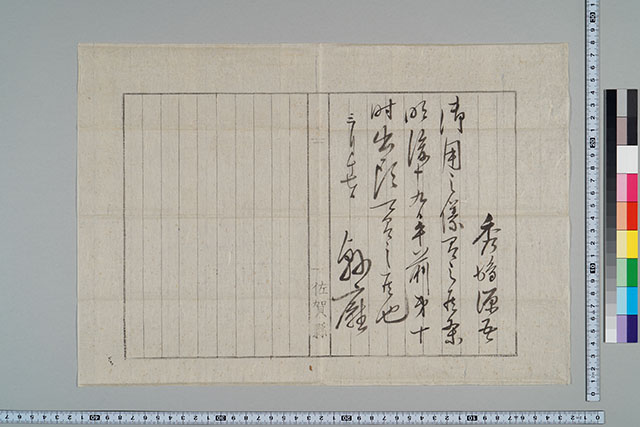 秀島源吾
御用之儀有之候条
明後十九日午前第十
時出頭可有之候也
三月十七日
縣廳
佐賀縣